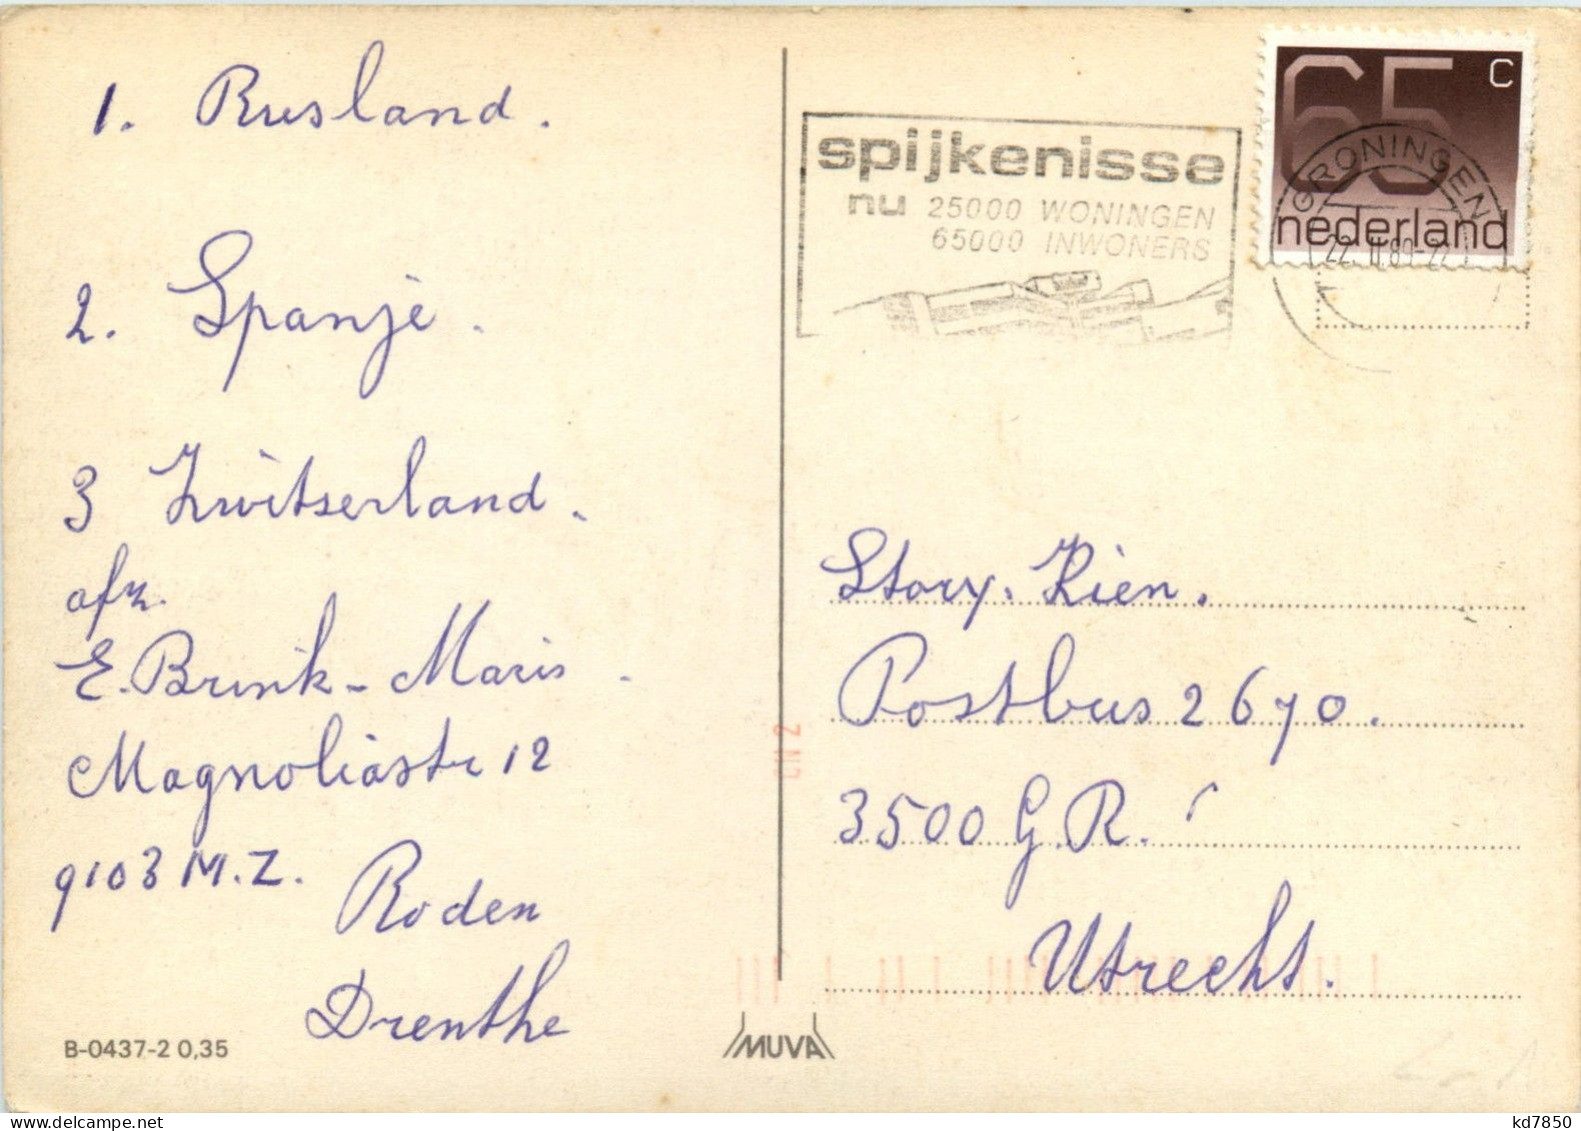 1. Rusland.
2. Spanje.
3 Zwitserland.
afz.
E. Brink-Maris
Magnoliastr 12
9103 M.Z.
Roden
Drenthe
B-0437-2 0,35
MUVA
CN 2
spijkenisse
nu 25000 WONINGEN
65000 INWONERS
65 C
nederland
GRONINGEN
Story. Rien.
Postbus 2670.
3500 G.R.
Utrecht.
kd7850